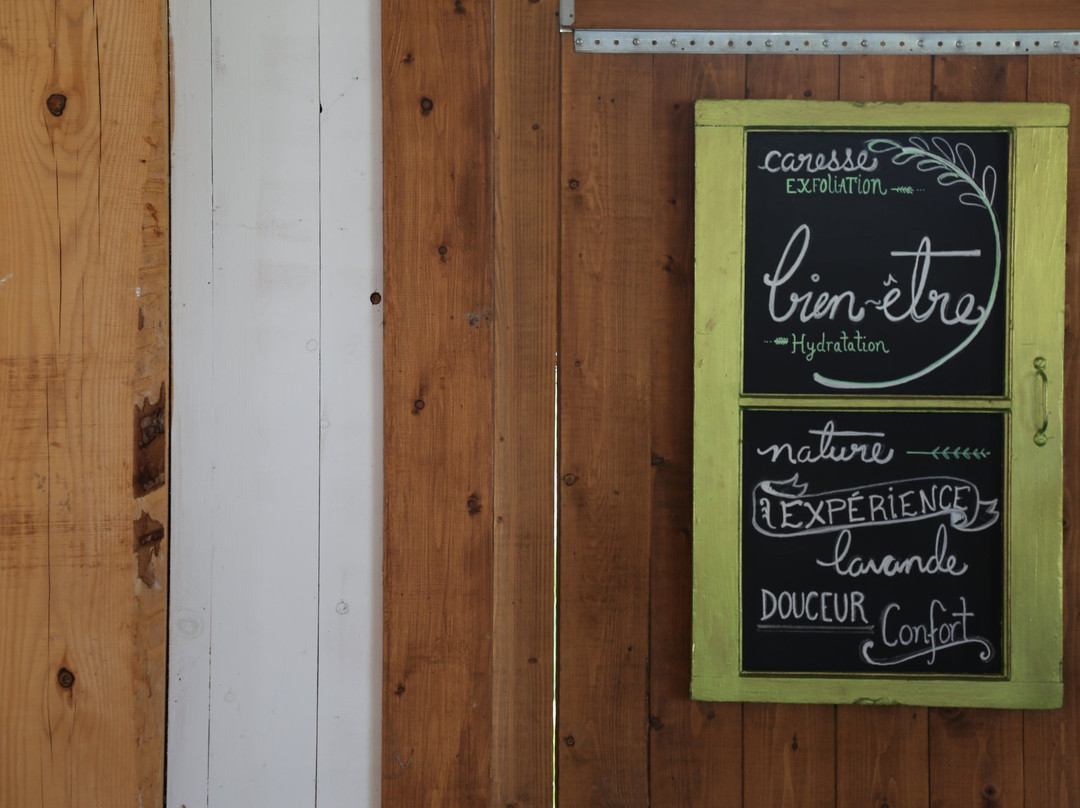 caresse
EXFOLiATION
bien-être
Hydratation
nature
EXPÉRiENCE
lavande
DOUCEUR
Confort